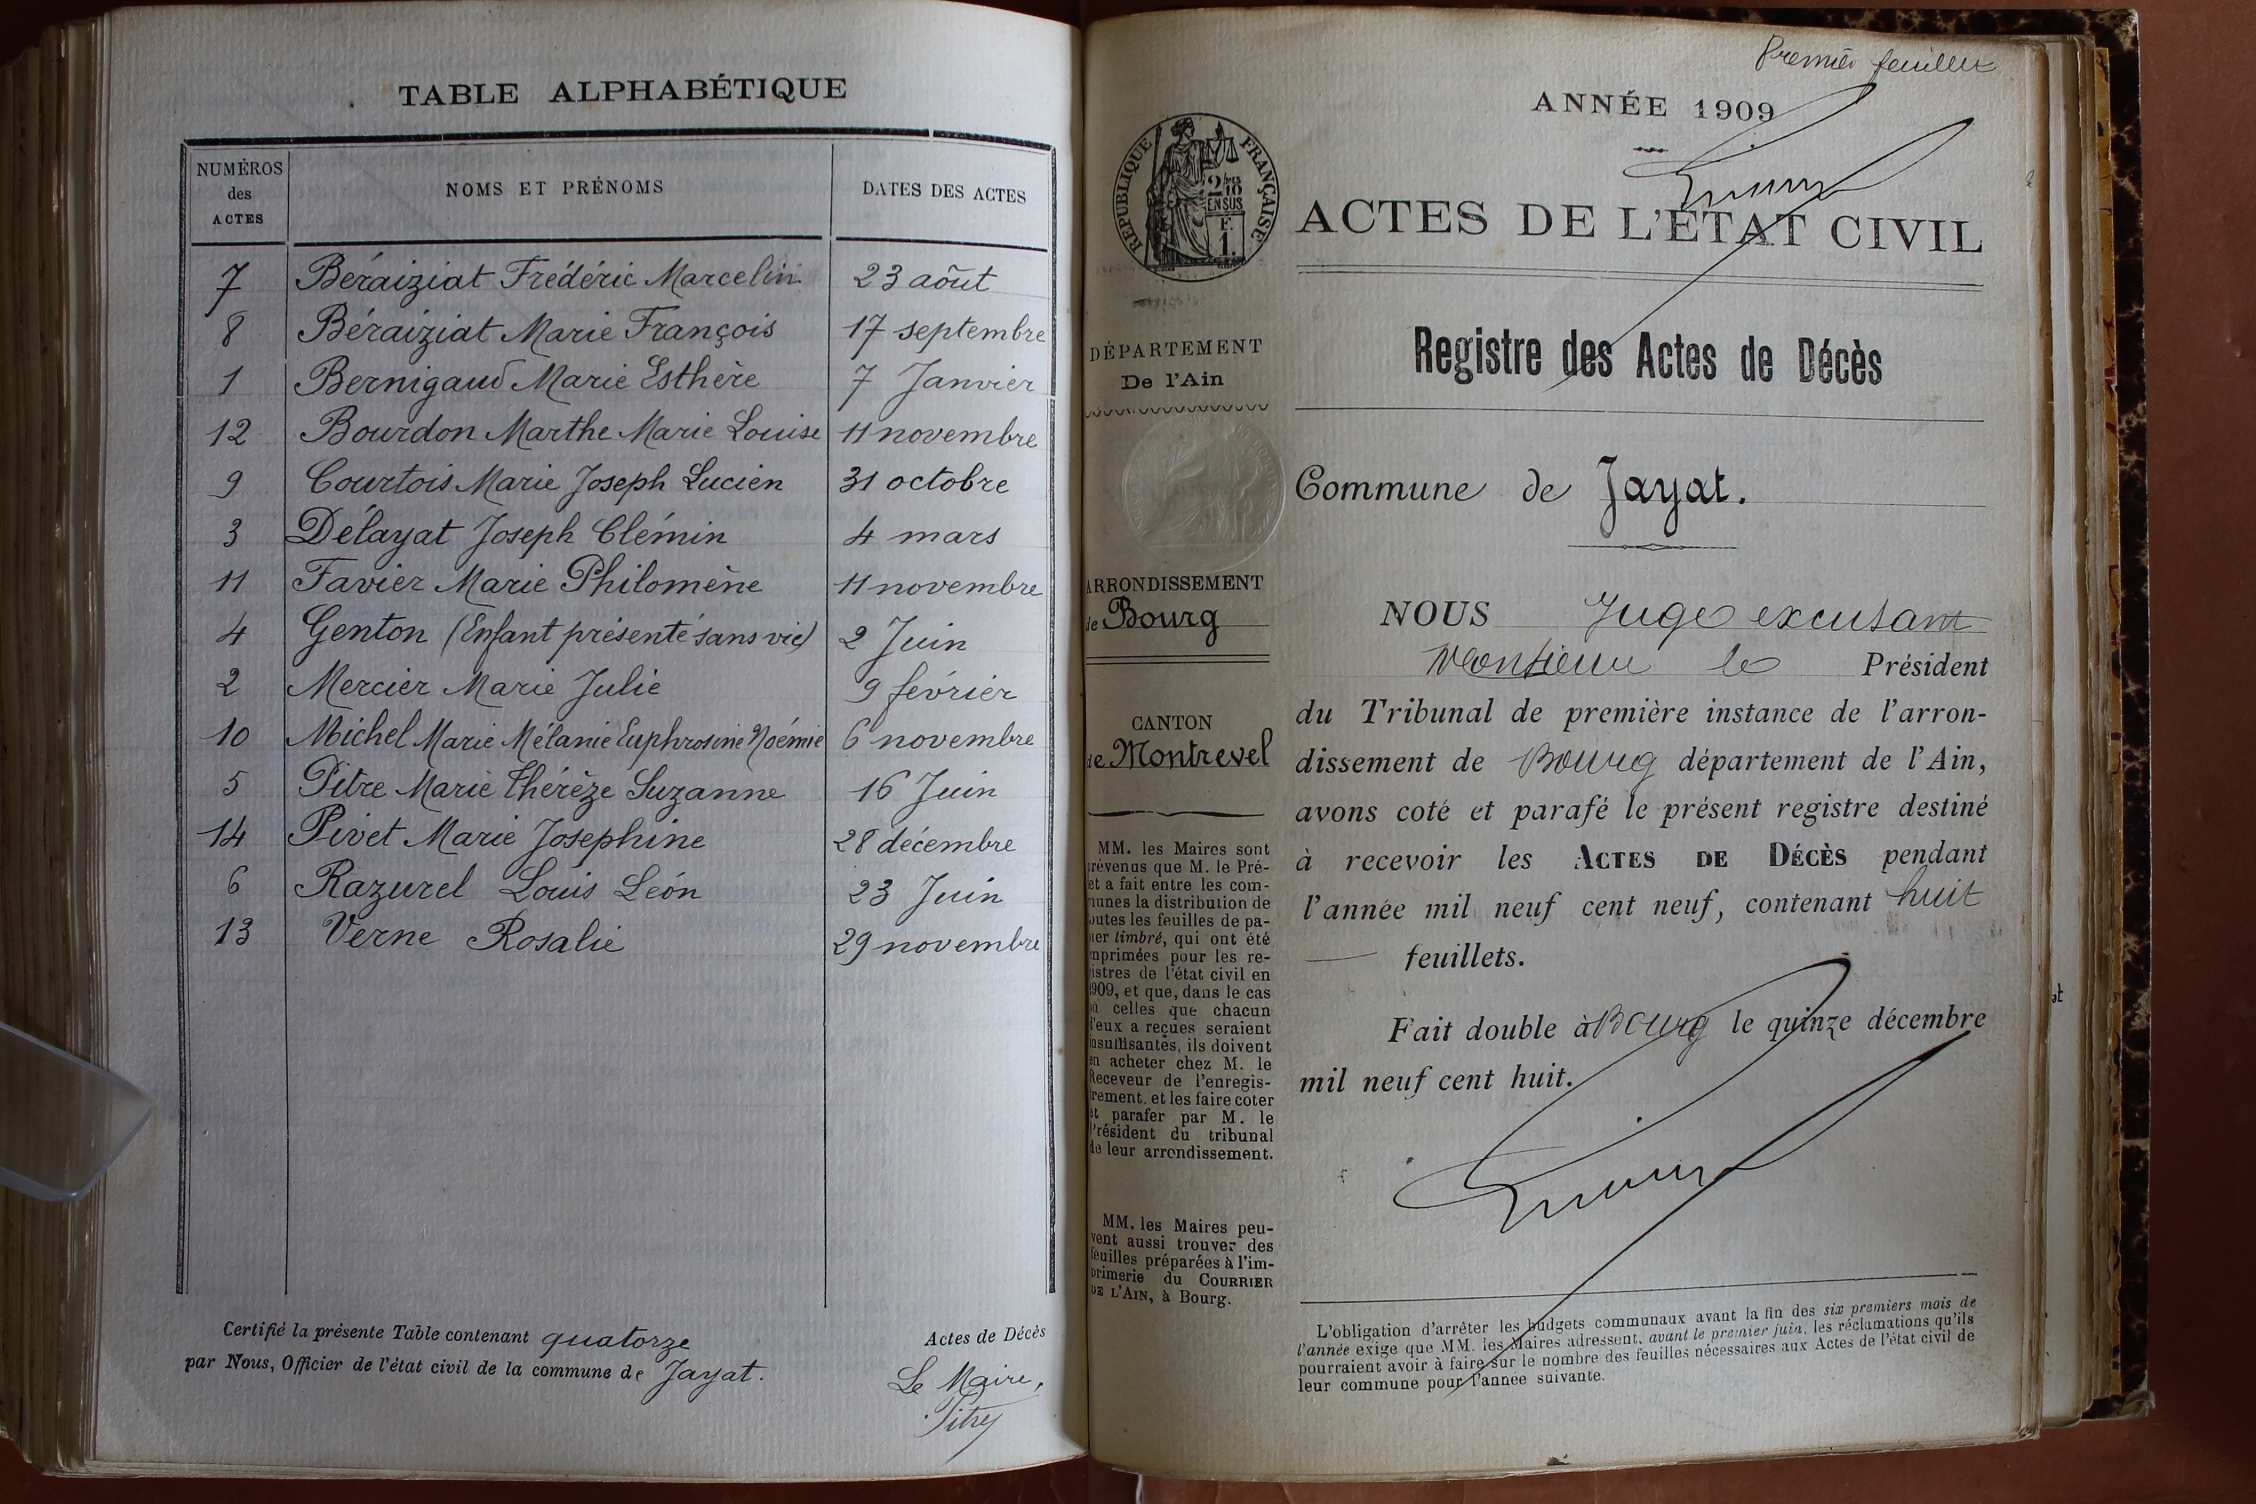 TABLE ALPHABÉTIQUE
NUMÉROS des ACTES NOMS ET PRÉNOMS DATES DES ACTES
7 Béraiziat Frédéric Marcelin 23 août
8 Béraiziat Marie François 17 septembre
1 Bernigaud Marie Esthère 7 Janvier
12 Bourdon Marthe Marie Louise 11 novembre
9 Courtois Marie Joseph Lucien 31 octobre
3 Délayat Joseph Clémin 4 mars
11 Favier Marie Philomène 11 novembre
4 Genton (Enfant présenté sans vie) 2 Juin
2 Mercier Marie Julie 9 février
10 Michel Marie Mélanie Euphrosine Noémie 6 novembre
5 Pitre Marie Thérèze Suzanne 16 Juin
14 Pivet Marie Josephine 28 décembre
6 Razurel Louis Léon 23 Juin
13 Verne Rosalie 29 novembre
Certifié la présente Table contenant quatorze Actes de Décès
par Nous, Officier de l'état civil de la commune de Jayat.
Le Maire,
Pitre
Premier feuillet
ANNÉE 1909
RÉPUBLIQUE FRANÇAISE
ACTES DE L'ÉTAT CIVIL
Registre des Actes de Décès
DÉPARTEMENT
De l'Ain
Commune de Jayat.
ARRONDISSEMENT
de Bourg
CANTON
de Montrevel
MM. les Maires sont
prévenus que M. le Pré-
fet a fait entre les com-
munes la distribution de
toutes les feuilles de pa-
pier timbré, qui ont été
imprimées pour les re-
gistres de l'état civil en
1909, et que, dans le cas
où celles que chacun
d'eux a reçues seraient
insuffisantes, ils doivent
en acheter chez M. le
Receveur de l'enregis-
trement. et les faire coter
et parafer par M. le
Président du tribunal
de leur arrondissement.
MM. les Maires peu-
vent aussi trouver des
feuilles préparées à l'im-
primerie du COURRIER
DE L'AIN, à Bourg.
NOUS Juge excusant
Monsieur le Président
du Tribunal de première instance de l'arron-
dissement de Bourg département de l'Ain,
avons coté et parafé le présent registre destiné
à recevoir les ACTES DE DÉCÈS pendant
l'année mil neuf cent neuf, contenant huit
feuillets.
Fait double à Bourg le quinze décembre
mil neuf cent huit.
L'obligation d'arrêter les budgets communaux avant la fin des six premiers mois de
l'année exige que MM. les Maires adressent, avant le premier juin, les réclamations qu'ils
pourraient avoir à faire sur le nombre des feuilles nécessaires aux Actes de l'état civil de
leur commune pour l'année suivante.